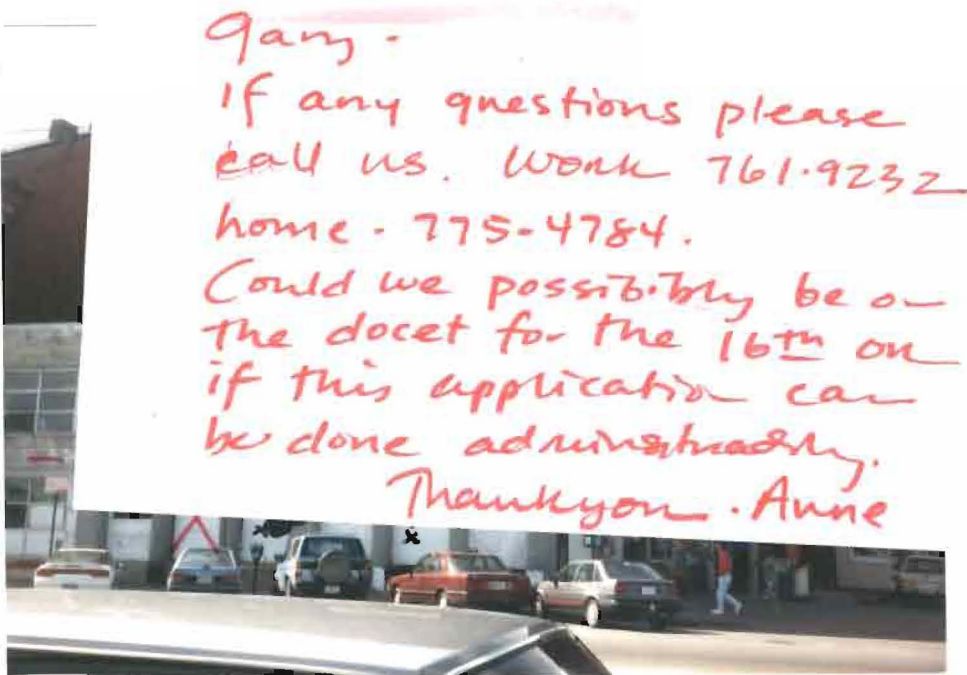 Gary -
If any questions please
call us. Work 761.9232
home - 775-4784.
Could we possibibly be on
the docet for the 16th or
if this application can
be done adminstratively.
Thankyou. Anne